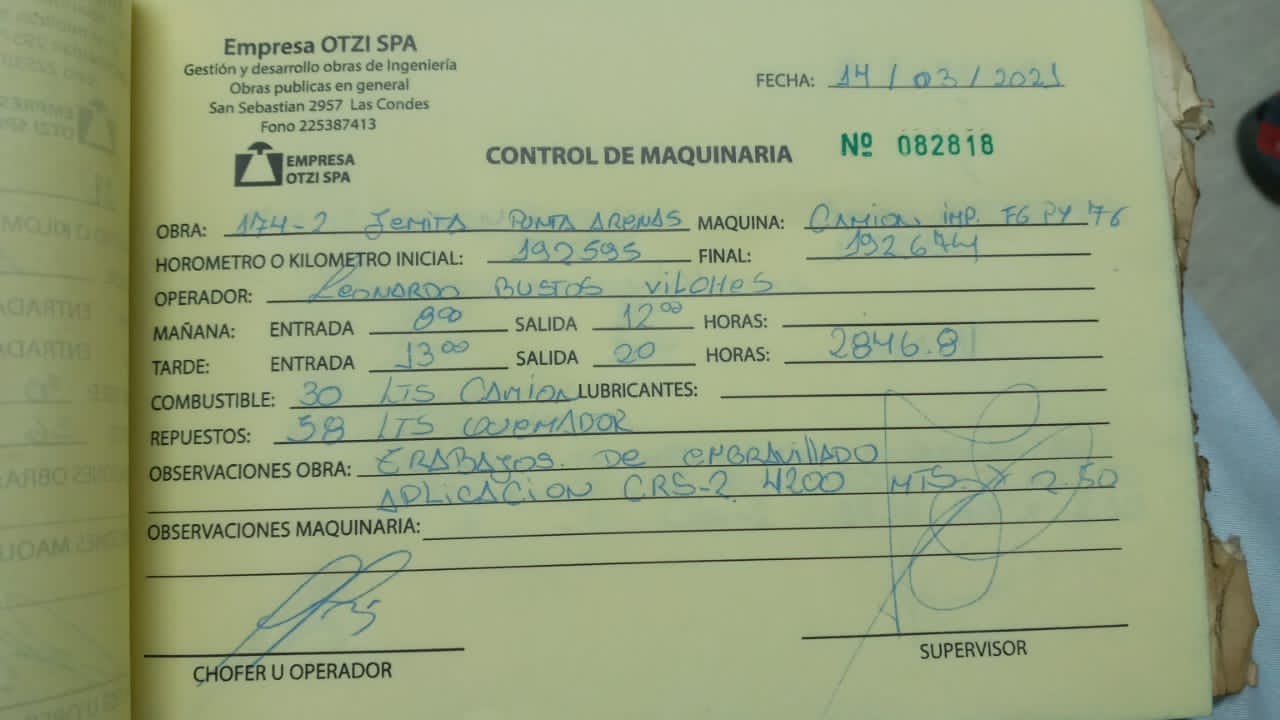 Empresa OTZI SPA
Gestión y desarrollo obras de Ingeniería
Obras publicas en general
San Sebastian 2957 Las Condes
Fono 225387413
EMPRESA
OTZI SPA
FECHA: 14 / 03 / 2021
CONTROL DE MAQUINARIA
Nº 082818
OBRA: 174-2 Jemita Punta Arenas MAQUINA: Camion imp. FG PY 76
HOROMETRO O KILOMETRO INICIAL: 192595 FINAL: 192674
OPERADOR: Leonardo Bustos Vilches
MAÑANA: ENTRADA 8⁰⁰ SALIDA 12⁰⁰ HORAS:
TARDE: ENTRADA 13⁰⁰ SALIDA 20 HORAS: 2846.8
COMBUSTIBLE: 30 LTS Camion LUBRICANTES:
REPUESTOS: 58 LTS quemador
OBSERVACIONES OBRA: Trabajos. De engravillado
Aplicacion CRS-2 4200 MTS X 2.50
OBSERVACIONES MAQUINARIA:
CHOFER U OPERADOR
SUPERVISOR